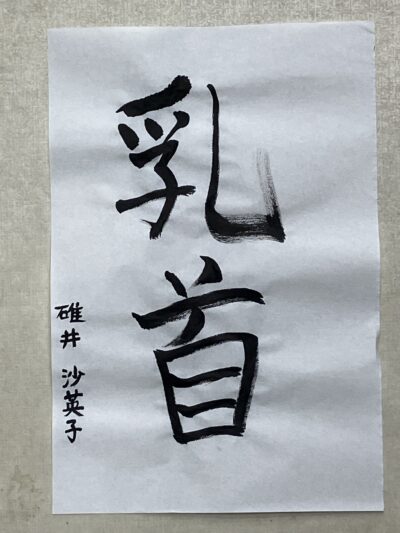 乳首
碓井 沙英子